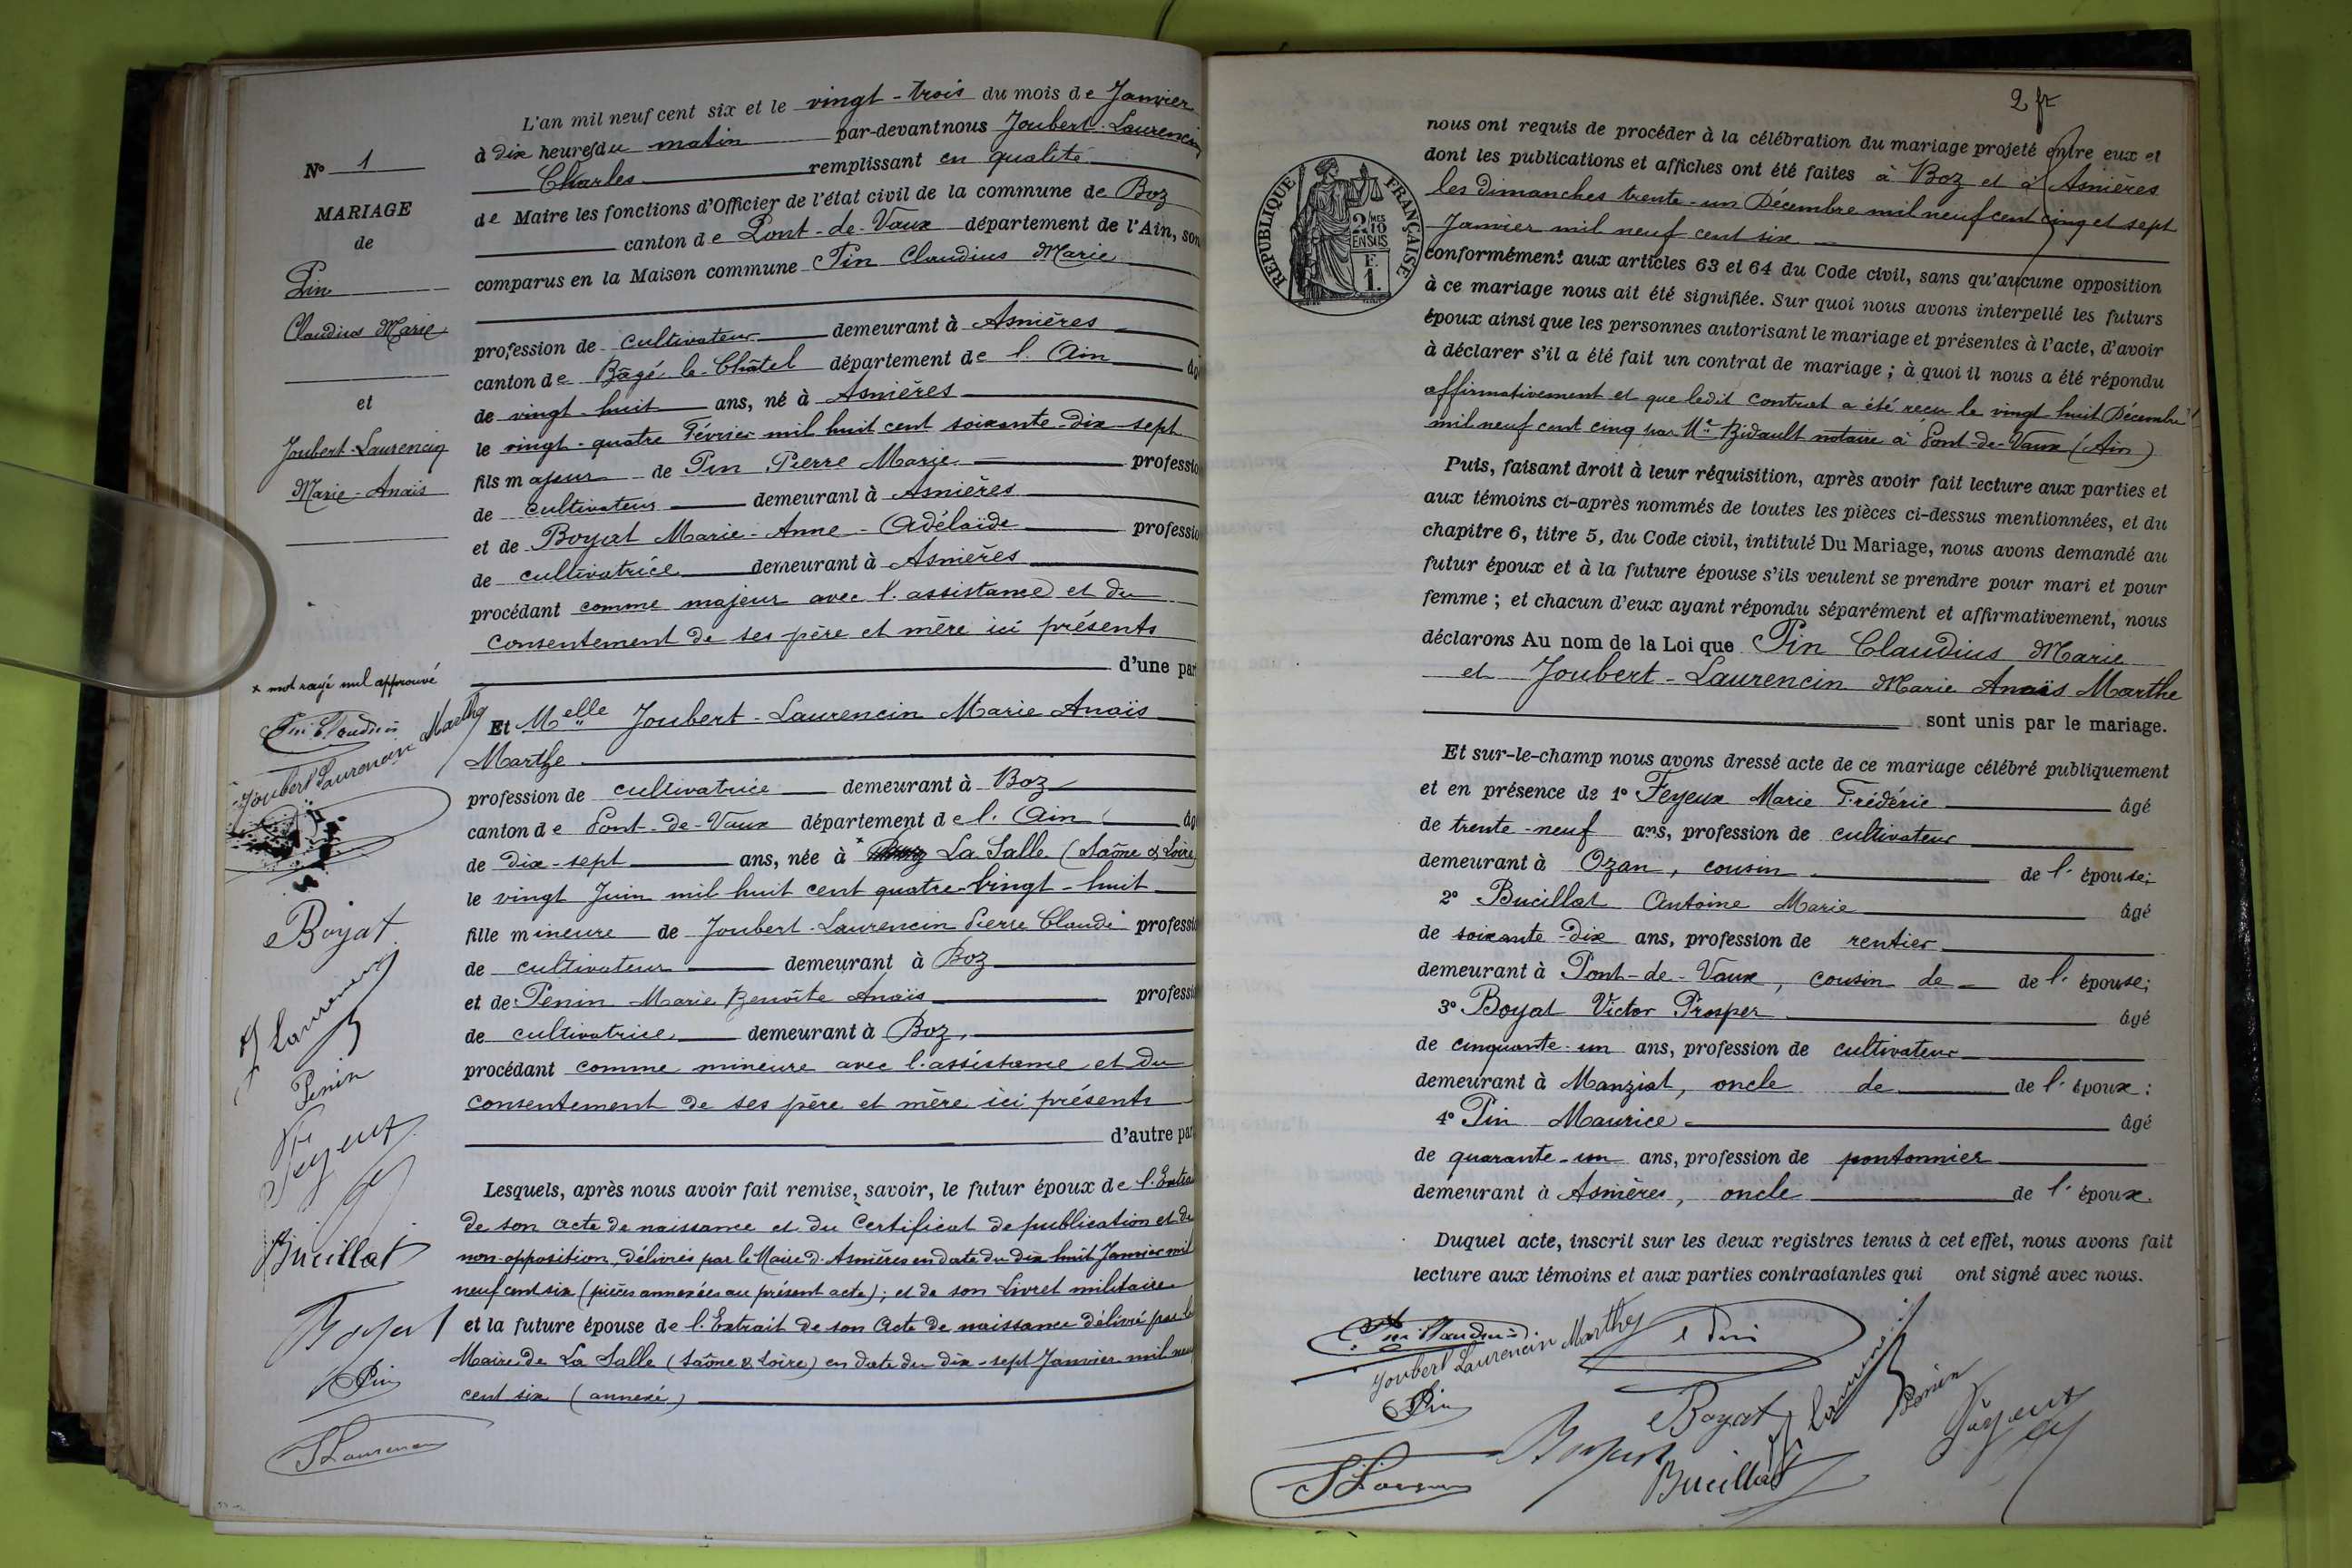 N° 1
MARIAGE
de
Pin
Claudius Marie
et
Joubert-Laurencin
Marie-Anaïs
x mot rayé nul approuvé
Pin Claudius
Joubert Laurencin Marthe
Boyat
Laurencin
Penin
Feyeux
Bucillat
Boyat
Pin
Laurencin
L'an mil neuf cent six et le vingt-trois du mois de Janvier
à dix heures du matin par-devant nous Joubert-Laurencin
Charles remplissant en qualité
de Maire les fonctions d'Officier de l'état civil de la commune de Boz
canton de Pont-de-Vaux département de l'Ain, son
comparus en la Maison commune Pin Claudius Marie
profession de cultivateur demeurant à Asnières
canton de Bâgé-le-Châtel département de l'Ain âg
de vingt-huit ans, né à Asnières
le vingt-quatre Février mil huit cent soixante-dix-sept
fils majeur de Pin Pierre Marie professio
de cultivateur demeurant à Asnières
et de Boyat Marie-Anne-Adélaïde professio
de cultivatrice demeurant à Asnières
procédant comme majeur avec l'assistance et du
consentement de ses père et mère ici présents
d'une par
Et Melle Joubert-Laurencin Marie Anaïs
Marthe
profession de cultivatrice demeurant à Boz
canton de Pont-de-Vaux département de l'Ain âg
de dix-sept ans, née à x La Salle (Saône & Loire)
le vingt Juin mil huit cent quatre-vingt-huit
fille mineure de Joubert-Laurencin Pierre Claude professio
de cultivateur demeurant à Boz
et de Penin Marie Benoîte Anaïs professio
de cultivatrice demeurant à Boz,
procédant comme mineure avec l'assistance et du
consentement de ses père et mère ici présents
d'autre par
Lesquels, après nous avoir fait remise, savoir, le futur époux de l'Extrait
de son acte de naissance et du Certificat de publication et de
non-opposition, délivrés par le Maire d'Asnières en date du dix huit Janvier mil
neuf cent six (pièces annexées au présent acte); et de son Livret militaire
et la future épouse de l'Extrait de son Acte de naissance délivré par le
Maire de La Salle (Saône & Loire) en date du dix-sept Janvier mil neuf
cent six (annexé)
2 fr
RÉPUBLIQUE FRANÇAISE
2/10 MES
EN SUS
F.
1.
nous ont requis de procéder à la célébration du mariage projeté entre eux et
dont les publications et affiches ont été faites à Boz et à Asnières
les dimanches trente-un Décembre mil neuf cent cinq et sept
Janvier mil neuf cent six
conformément aux articles 63 et 64 du Code civil, sans qu'aucune opposition
à ce mariage nous ait été signifiée. Sur quoi nous avons interpellé les futurs
époux ainsi que les personnes autorisant le mariage et présentes à l'acte, d'avoir
à déclarer s'il a été fait un contrat de mariage ; à quoi il nous a été répondu
affirmativement et que ledit contrat a été reçu le vingt huit Décembre
mil neuf cent cinq par Me Bidault notaire à Pont-de-Vaux (Ain)
Puis, faisant droit à leur réquisition, après avoir fait lecture aux parties et
aux témoins ci-après nommés de toutes les pièces ci-dessus mentionnées, et du
chapitre 6, titre 5, du Code civil, intitulé Du Mariage, nous avons demandé au
futur époux et à la future épouse s'ils veulent se prendre pour mari et pour
femme ; et chacun d'eux ayant répondu séparément et affirmativement, nous
déclarons Au nom de la Loi que Pin Claudius Marie
et Joubert-Laurencin Marie Anaïs Marthe
sont unis par le mariage.
Et sur-le-champ nous avons dressé acte de ce mariage célébré publiquement
et en présence de 1° Feyeux Marie Frédéric âgé
de trente-neuf ans, profession de cultivateur
demeurant à Ozan, cousin de l'épouse;
2° Bucillat Antoine Marie âgé
de soixante-dix ans, profession de rentier
demeurant à Pont-de-Vaux, cousin de de l'épouse;
3° Boyat Victor Prosper âgé
de cinquante-un ans, profession de cultivateur
demeurant à Manziat, oncle de de l'époux:
4° Pin Maurice âgé
de quarante-un ans, profession de pontonnier
demeurant à Asnières, oncle de l'époux.
Duquel acte, inscrit sur les deux registres tenus à cet effet, nous avons fait
lecture aux témoins et aux parties contractantes qui ont signé avec nous.
Pin Claudius
Joubert Laurencin Marthe
Pin
Pin
Boyat
Laurencin
Penin
Feyeux
Boyat
Bucillat
Laurencin